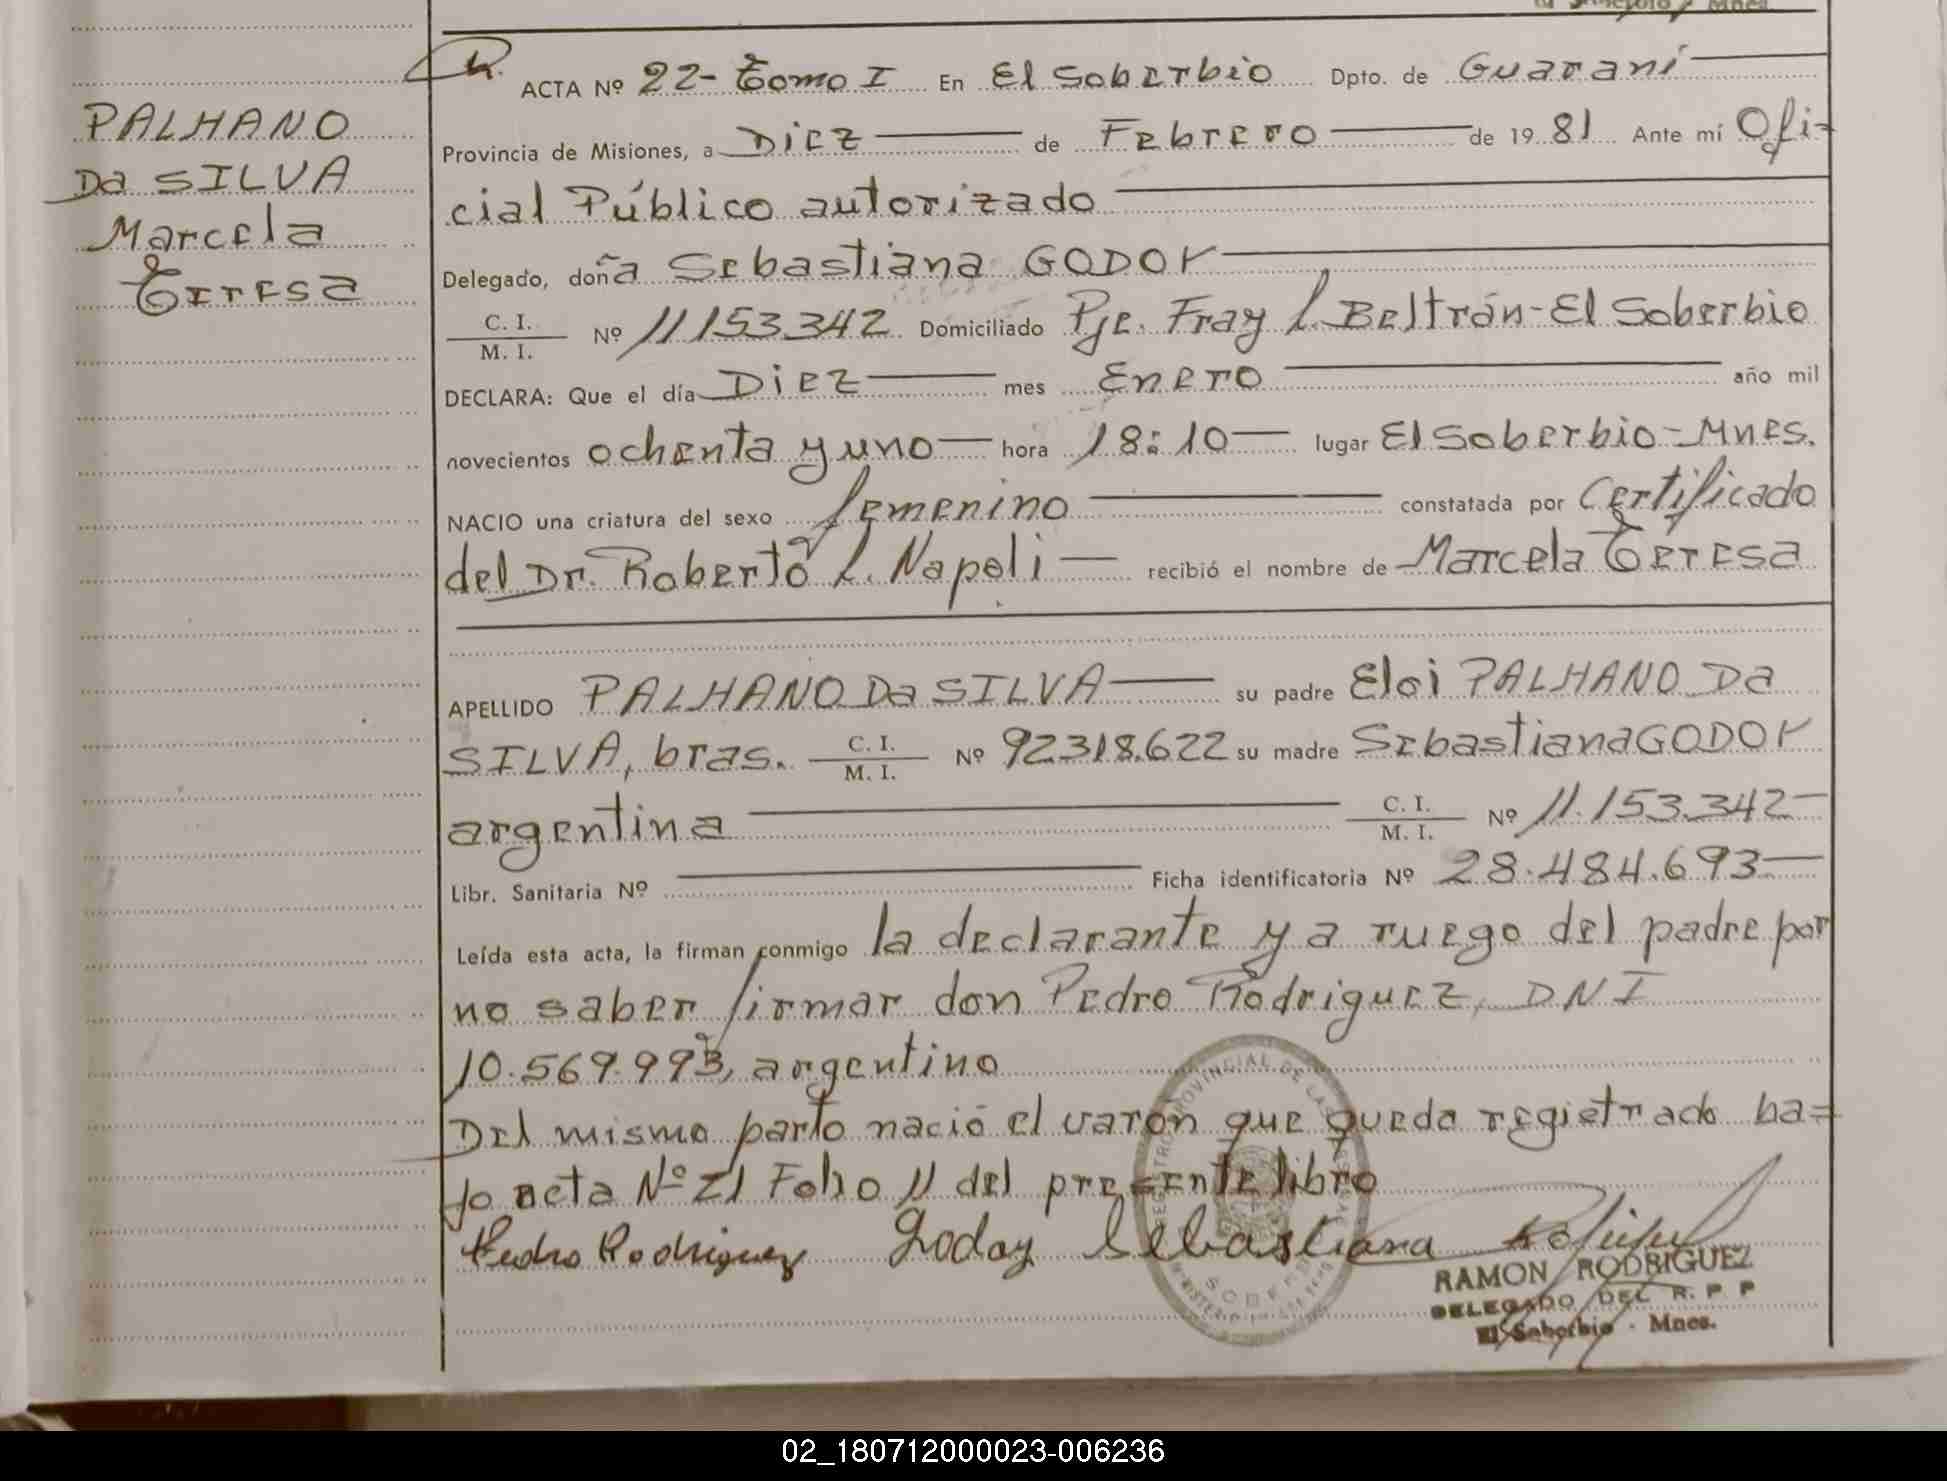 PALHANO
Da SILVA
Marcela
Teresa
ACTA Nº 22- Tomo I En El Soberbio Dpto. de Guaraní
Provincia de Misiones, a Diez de Febrero de 1981 Ante mí Ofi-
cial Público autorizado
Delegado, doña Sebastiana GODOY
C. I.
M. I. Nº 11153.342 Domiciliado Pje. Fray L. Beltrán-El Soberbio
DECLARA: Que el día Diez mes Enero año mil
novecientos ochenta y uno hora 18:10 lugar El Soberbio-Mnes.
NACIO una criatura del sexo femenino constatada por Certificado
del Dr. Roberto L. Napoli recibió el nombre de Marcela Teresa
APELLIDO PALHANO Da SILVA su padre Eloi PALHANO Da
SILVA, bras. C. I. M. I. Nº 92318.622 su madre Sebastiana GODOY
argentina C. I. M. I. Nº 11.153.342
Libr. Sanitaria Nº Ficha identificatoria Nº 28.484.693
Leída esta acta, la firman conmigo la declarante y a ruego del padre por
no saber firmar don Pedro Rodriguez, DNI
10.569.993, argentino
Del mismo parto nació el varón que queda registrado ba=
jo acta Nº 21 Folio 11 del presente libro
Pedro Rodriguez Godoy Sebastiana
RAMON RODRIGUEZ
DELEGADO DEL R. P. P
El Soberbio - Mnes.
02_180712000023-006236